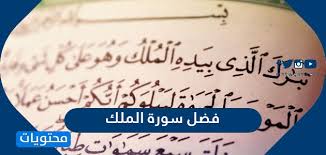 بِسْمِ
تَبَٰرَكَ ٱلَّذِي بِيَدِهِ ٱلْمُلْكُ وَهُوَ عَلَىٰ كُلِّ
ٱلْمَوْتَ وَٱلْحَيَوٰةَ لِيَبْلُوَكُمْ أَيُّكُمْ أَحْسَنُ عَمَلًا
سَبْعَ سَمَٰوَٰتٍ
فضل سورة الملك
محتويات